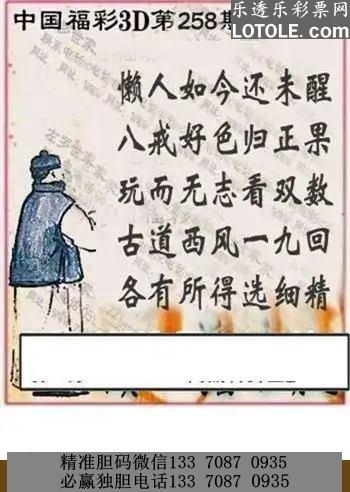 中国福彩3D第258期
乐透乐彩票网
LOTOLE.COM
懒人如今还未醒
八戒好色归正果
玩而无志看双数
古道西风一九回
各有所得选细精
精准胆码微信133 7087 0935
必赢独胆电话133 7087 0935